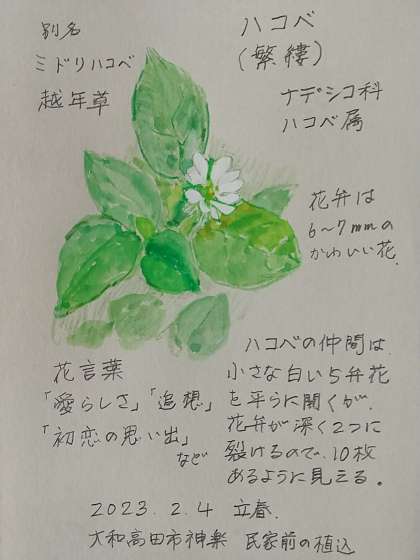 ハコベ
(繁縷)
ナデシコ科
ハコベ属
別名
ミドリハコベ
越年草
花弁は
6〜7mmの
かわいい花.
花言葉
「愛らしさ」「追想」
「初恋の思い出」
など
ハコベの仲間は
小さな白い5弁花
を平らに開くが.
花弁が深く2つに
裂けるので、10枚
あるように見える。
2023.2.4 立春.
大和高田市神楽 民家前の植込